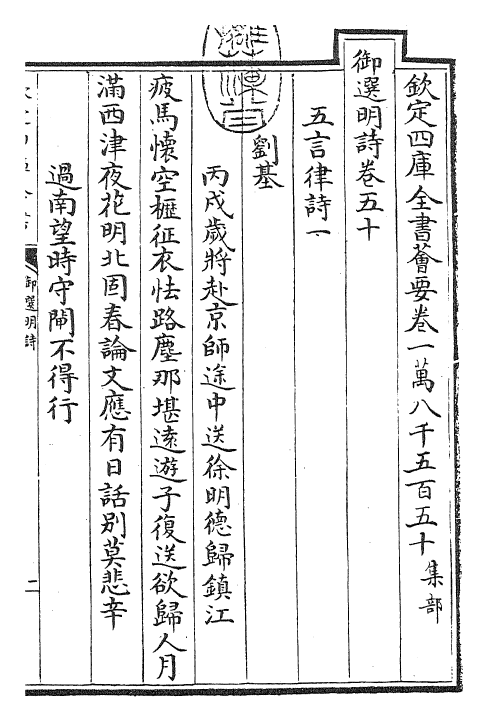 欽定四庫全書薈要卷一萬八千五百五十集部
御選明詩卷五十
五言律詩一
劉基
丙戌歲將赴京師途中送徐明德歸鎮江
疲馬懷空櫪征衣怯路塵那堪遠遊子復送欲歸人月
滿西津夜花明北固春論文應有日話別莫悲辛
過南望時守閘不得行
御選明詩
二